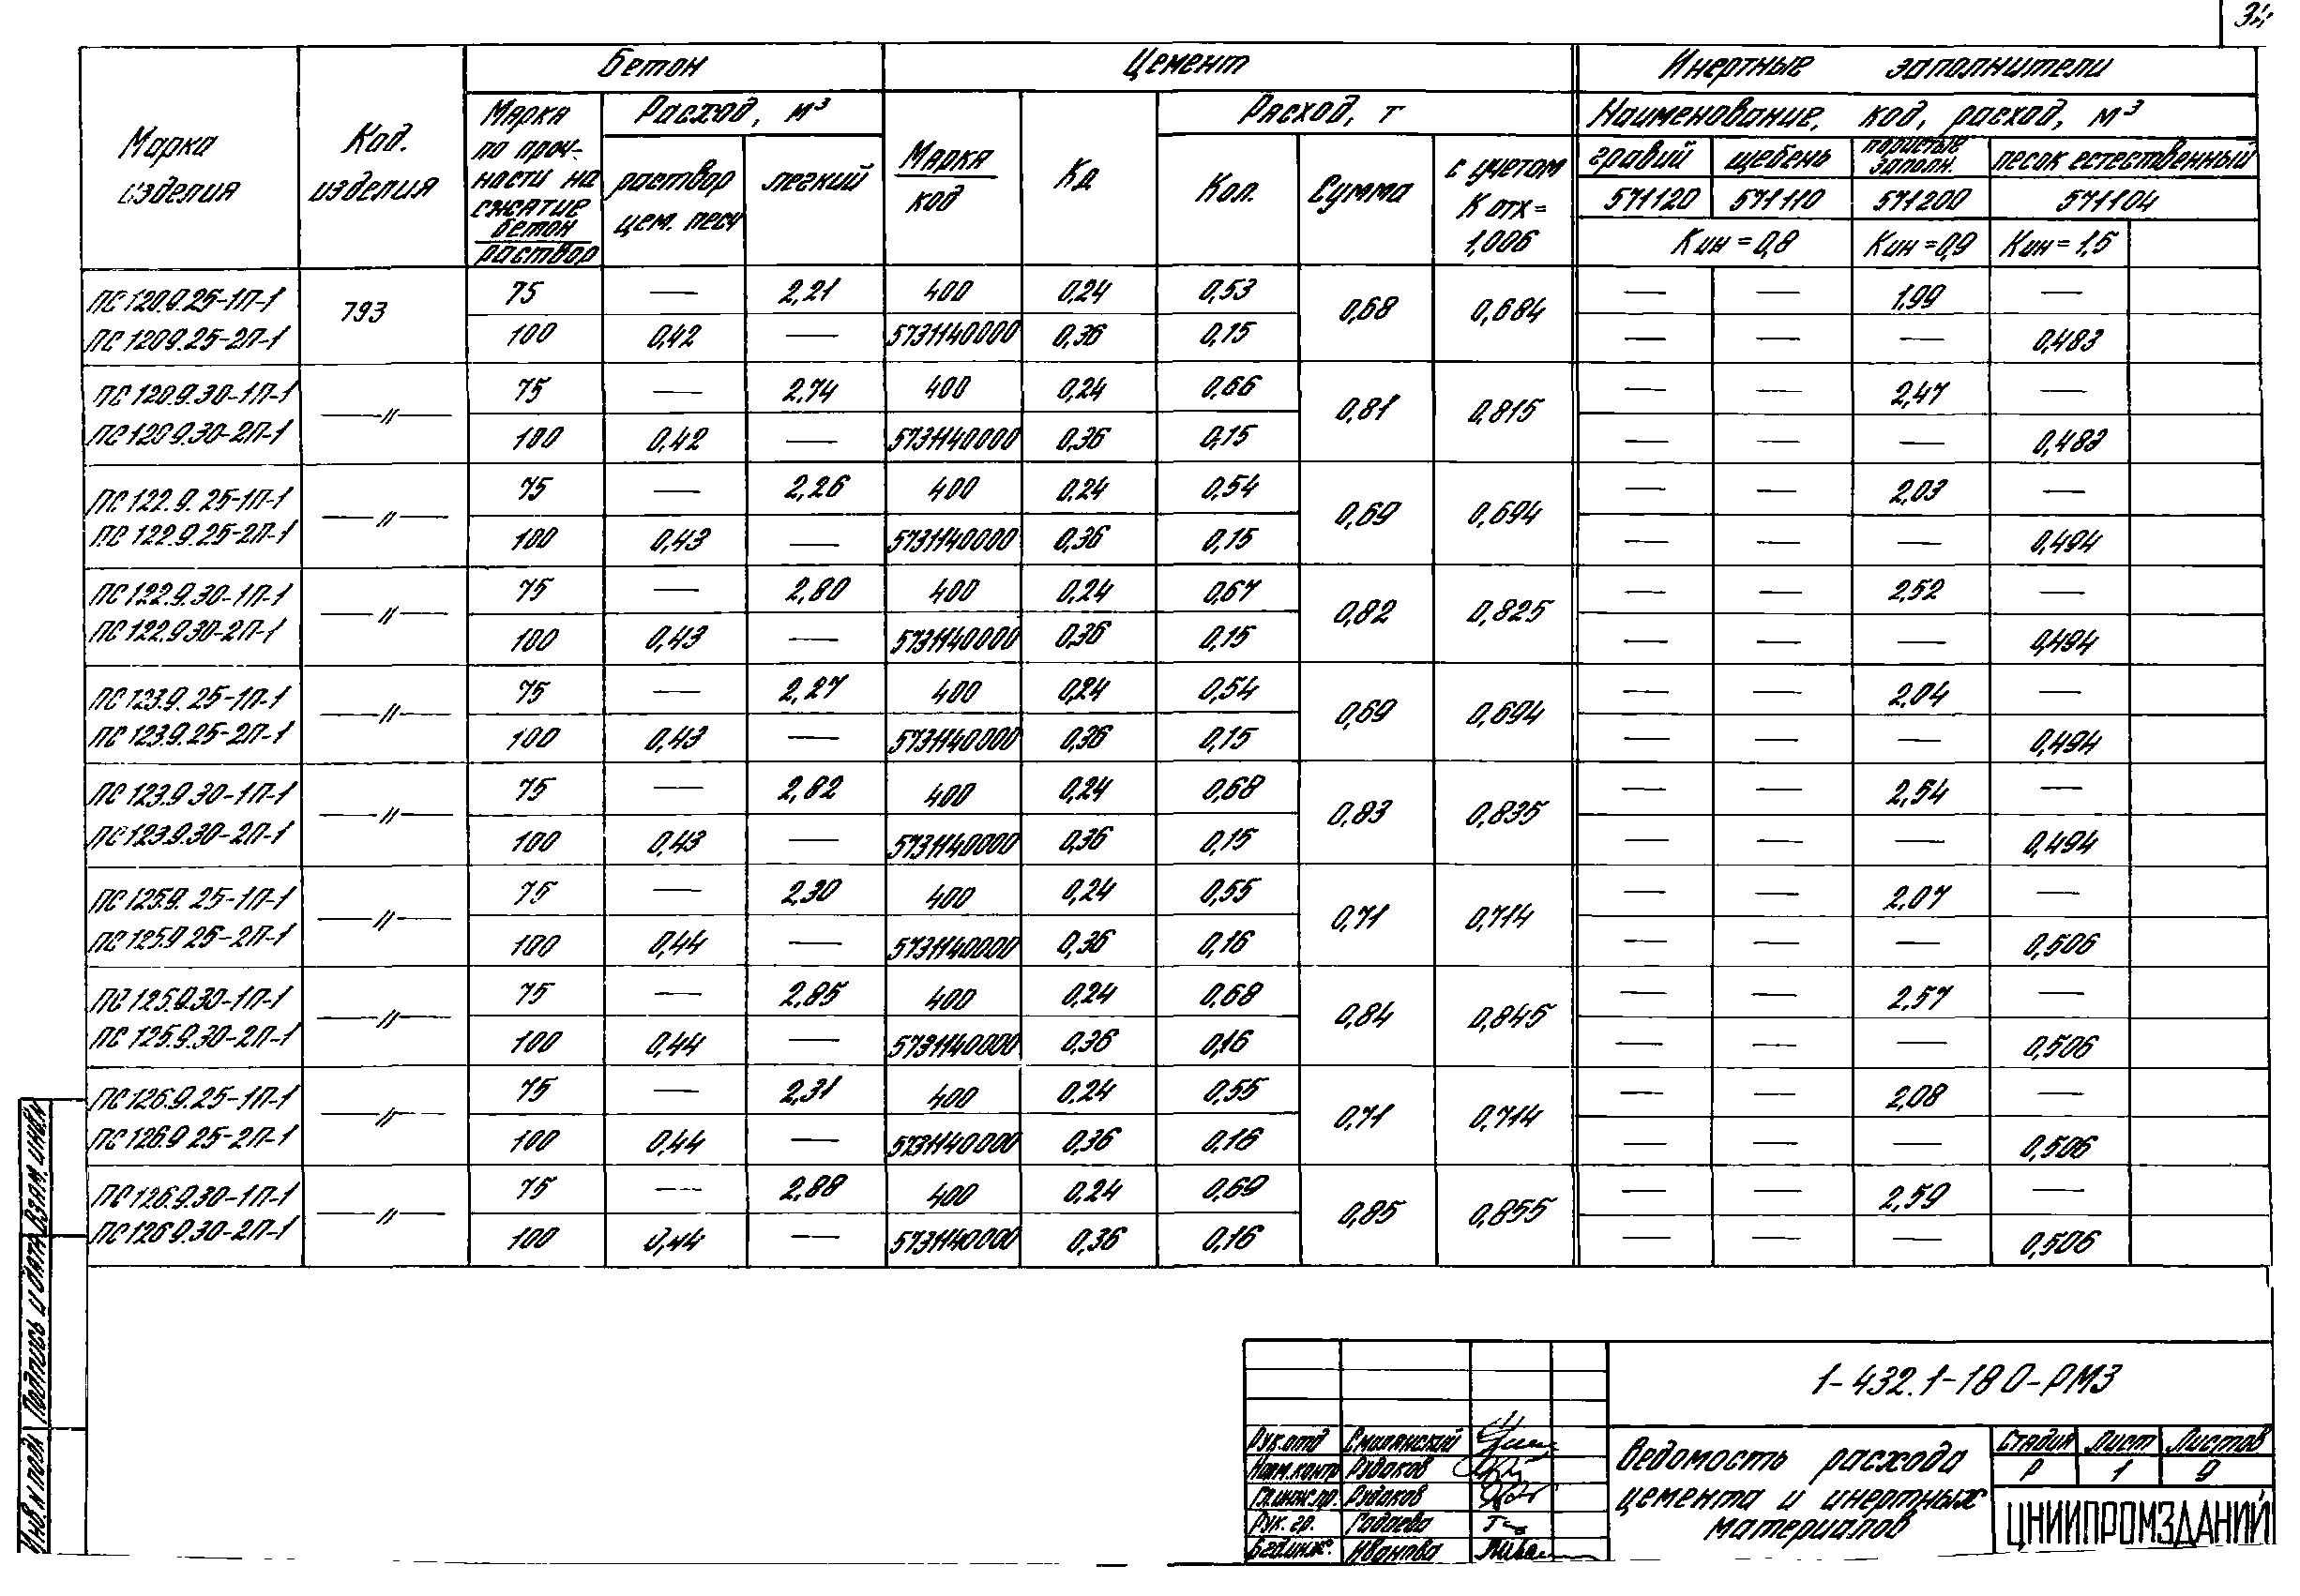 Марка изделия
Код. изделия
Бетон
Цемент
Инертные заполнители
Марка по проч-ности на сжатие бетон/раствор
Расход, м³
раствор цем. песч
легкий
Марка/код
Кд
Расход, т
Кол.
Сумма
с учетом К отх = 1,006
Наименование, код, расход, м³
гравий щебень пористые заполн. песок естественный
571120 571110 571200 571104
Кин = 0,8 Кин = 0,9 Кин = 1,5
ПС 120.9.25-1П-1 793 75 — 2,21 400 0,24 0,53 0,68 0,684 — — 1,99 —
ПС 120.9.25-2П-1 100 0,42 — 5731140000 0,36 0,15 — — — 0,483
ПС 120.9.30-1П-1 —//— 75 — 2,74 400 0,24 0,66 0,81 0,815 — — 2,47 —
ПС 120.9.30-2П-1 100 0,42 — 5731140000 0,36 0,15 — — — 0,483
ПС 122.9.25-1П-1 —//— 75 — 2,26 400 0,24 0,54 0,69 0,694 — — 2,03 —
ПС 122.9.25-2П-1 100 0,43 — 5731140000 0,36 0,15 — — — 0,494
ПС 122.9.30-1П-1 —//— 75 — 2,80 400 0,24 0,67 0,82 0,825 — — 2,52 —
ПС 122.9.30-2П-1 100 0,43 — 5731140000 0,36 0,15 — — — 0,494
ПС 123.9.25-1П-1 —//— 75 — 2,27 400 0,24 0,54 0,69 0,694 — — 2,04 —
ПС 123.9.25-2П-1 100 0,43 — 5731140000 0,36 0,15 — — — 0,494
ПС 123.9.30-1П-1 —//— 75 — 2,82 400 0,24 0,68 0,83 0,835 — — 2,54 —
ПС 123.9.30-2П-1 100 0,43 — 5731140000 0,36 0,15 — — — 0,494
ПС 125.9.25-1П-1 —//— 75 — 2,30 400 0,24 0,55 0,71 0,714 — — 2,07 —
ПС 125.9.25-2П-1 100 0,44 — 5731140000 0,36 0,16 — — — 0,506
ПС 125.9.30-1П-1 —//— 75 — 2,85 400 0,24 0,68 0,84 0,845 — — 2,57 —
ПС 125.9.30-2П-1 100 0,44 — 5731140000 0,36 0,16 — — — 0,506
ПС 126.9.25-1П-1 —//— 75 — 2,31 400 0,24 0,55 0,71 0,714 — — 2,08 —
ПС 126.9.25-2П-1 100 0,44 — 5731140000 0,36 0,16 — — — 0,506
ПС 126.9.30-1П-1 —//— 75 — 2,88 400 0,24 0,69 0,85 0,855 — — 2,59 —
ПС 126.9.30-2П-1 100 0,44 — 5731140000 0,36 0,16 — — — 0,506
Взам. инв.№
Подпись и дата
Инв. № подл
1-432.1-18 0-РМ3
Рук.отд Смилянский
Норм.контр Рудаков
Гл.инж.пр. Рудаков
Рук. гр. Гадаева
Вед.инж. Иванова
Ведомость расхода
цемента и инертных
материалов
Стадия Лист Листов
Р 1 9
ЦНИИПРОМЗДАНИЙ